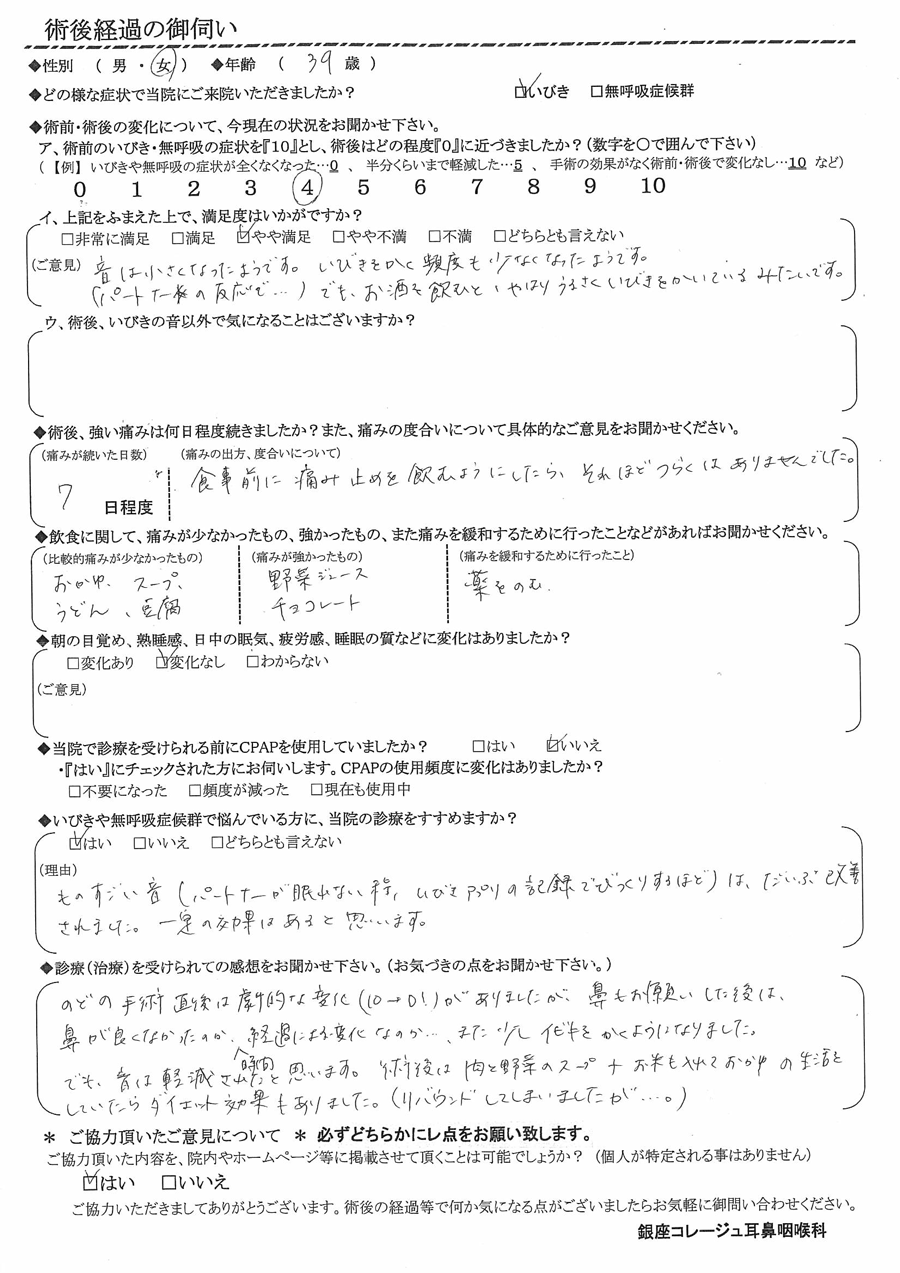 術後経過の御伺い
◆性別 ( 男 ・ 女 ) ◆年齢 ( 39 歳 )
◆どの様な症状で当院にご来院いただきましたか? ☑いびき □無呼吸症候群
◆術前・術後の変化について、今現在の状況をお聞かせ下さい。
ア、術前のいびき・無呼吸の症状を『10』とし、術後はどの程度『0』に近づきましたか?(数字を〇で囲んで下さい)
(【例】いびきや無呼吸の症状が全くなくなった…0 、 半分くらいまで軽減した…5 、 手術の効果がなく術前・術後で変化なし…10 など)
0 1 2 3 ④ 5 6 7 8 9 10
イ、上記をふまえた上で、満足度はいかがですか?
□非常に満足 □満足 ☑やや満足 □やや不満 □不満 □どちらとも言えない
(ご意見) 音は小さくなったようです。いびきをかく頻度も少なくなったようです。
(パートナーの反応で…)でも、お酒を飲むとやはりうるさくいびきをかいているみたいです。
ウ、術後、いびきの音以外で気になることはございますか?
◆術後、強い痛みは何日程度続きましたか?また、痛みの度合いについて具体的なご意見をお聞かせください。
(痛みが続いた日数) (痛みの出方、度合いについて)
7 日程度 食事前に痛み止めを飲むようにしたら、それほどつらくはありませんでした。
◆飲食に関して、痛みが少なかったもの、強かったもの、また痛みを緩和するために行ったことなどがあればお聞かせください。
(比較的痛みが少なかったもの) (痛みが強かったもの) (痛みを緩和するために行ったこと)
おかゆ、スープ、 野菜ジュース 薬をのむ.
うどん、豆腐 チョコレート
◆朝の目覚め、熟睡感、日中の眠気、疲労感、睡眠の質などに変化はありましたか?
□変化あり ☑変化なし □わからない
(ご意見)
◆当院で診療を受けられる前にCPAPを使用していましたか? □はい ☑いいえ
・『はい』にチェックされた方にお伺いします。CPAPの使用頻度に変化はありましたか?
□不要になった □頻度が減った □現在も使用中
◆いびきや無呼吸症候群で悩んでいる方に、当院の診療をすすめますか?
☑はい □いいえ □どちらとも言えない
(理由)
ものすごい音(パートナーが眠れない程、いびきアプリの記録でびっくりするほど)は、だいぶ改善
されました。一定の効果はあると思います。
◆診療(治療)を受けられての感想をお聞かせ下さい。(お気づきの点をお聞かせ下さい。)
のどの手術直後は劇的な変化(10→0!)がありましたが、鼻もお願いした後は、
鼻が良くなかったのか、経過による変化なのか…、また少しイビキをかくようになりました。
でも、音は軽減されたと思います。術後は肉と野菜のスープ+お米も入れておかゆの生活を
していたらダイエット効果もありました。(リバウンドしてしまいましたが…。)
* ご協力頂いたご意見について * 必ずどちらかにレ点をお願い致します。
ご協力頂いた内容を、院内やホームページ等に掲載させて頂くことは可能でしょうか? (個人が特定される事はありません)
☑はい □いいえ
ご協力いただきましてありがとうございます。術後の経過等で何か気になる点がございましたらお気軽に御問い合わせください。
銀座コレージュ耳鼻咽喉科